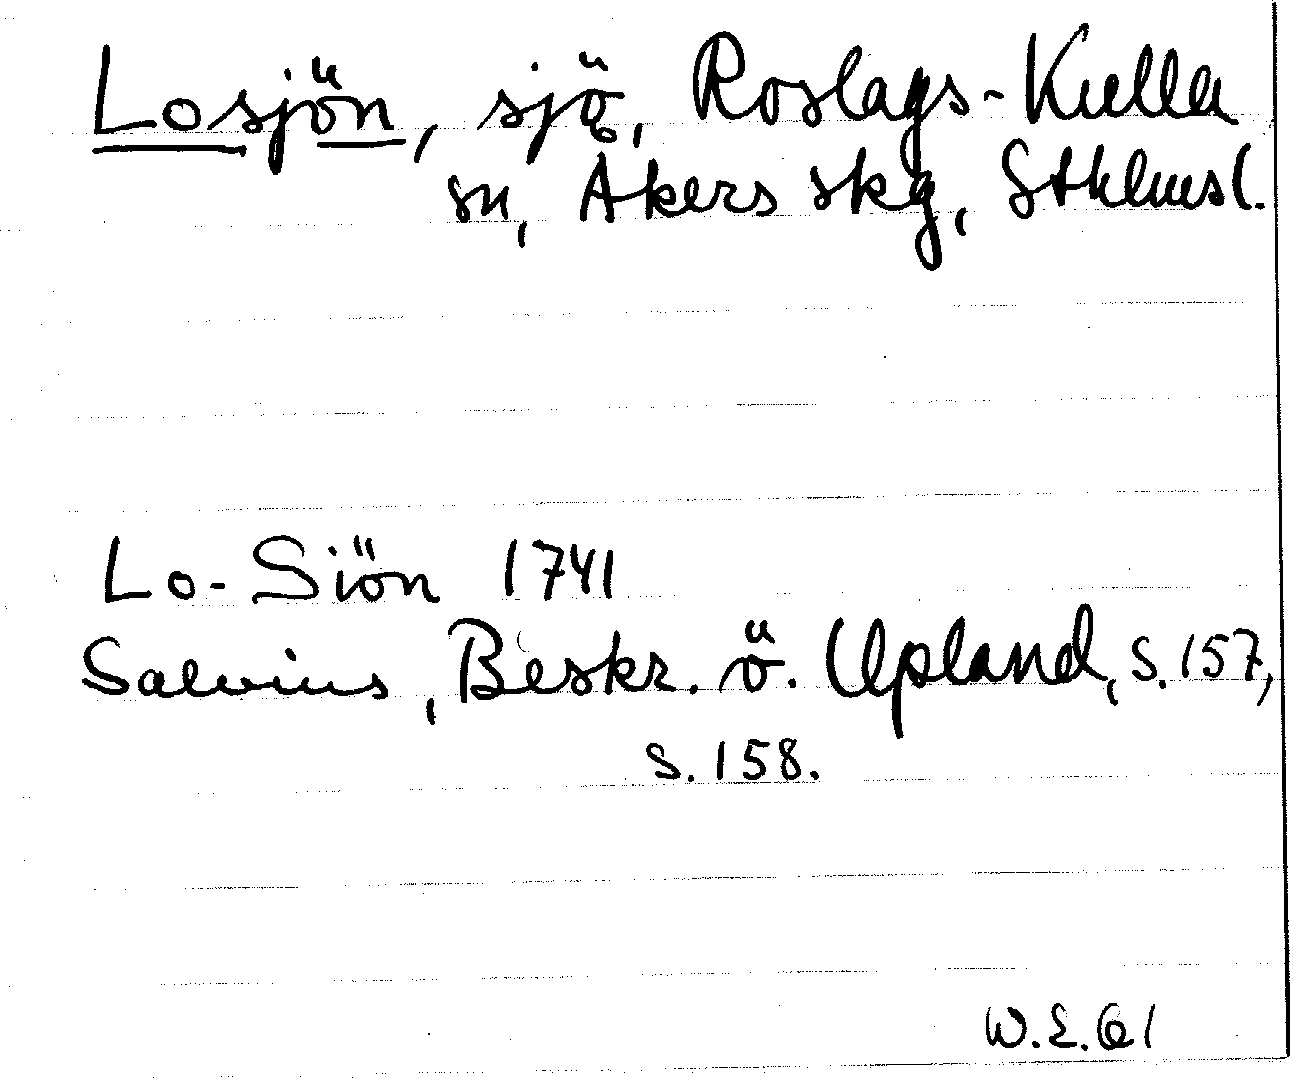 Losjön, sjö, Roslags-Kulla
sn, Åkers skg, Sthlms l.
Lo-Siön 1741
Salvius, Beskr. ö. Upland, s. 157,
s. 158.
W.E. 61